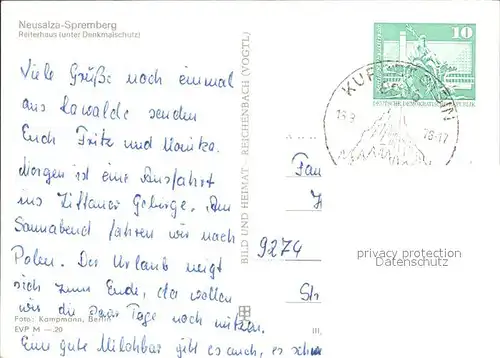 Neusalza-Spremberg
Reiterhaus (unter Denkmalschutz)
Viele Grüße noch einmal
aus Lawalde senden
Euch Fritz und Monika.
Morgen ist eine Ausfahrt
ins Zittauer Gebirge. Am
Sonnabend fahren wir nach
Polen. Der Urlaub neigt
sich zum Ende, da wollen
wir die paar Tage noch nützen.
Eine gute Milchbar gibt es auch, es
Foto: Kampmann, Berlin
EVP M —.20
BILD UND HEIMAT REICHENBACH (VOGTL)
10
DEUTSCHE DEMOKRATISCHE REPUBLIK
KURORT
78-17
Fam
9274
Str
III,
privacy protection
Datenschutz